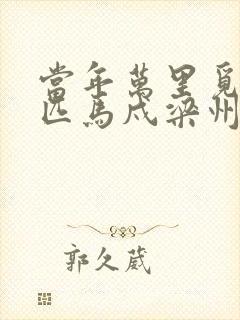 當年萬里覓
匹馬戍梁州
郭久葳